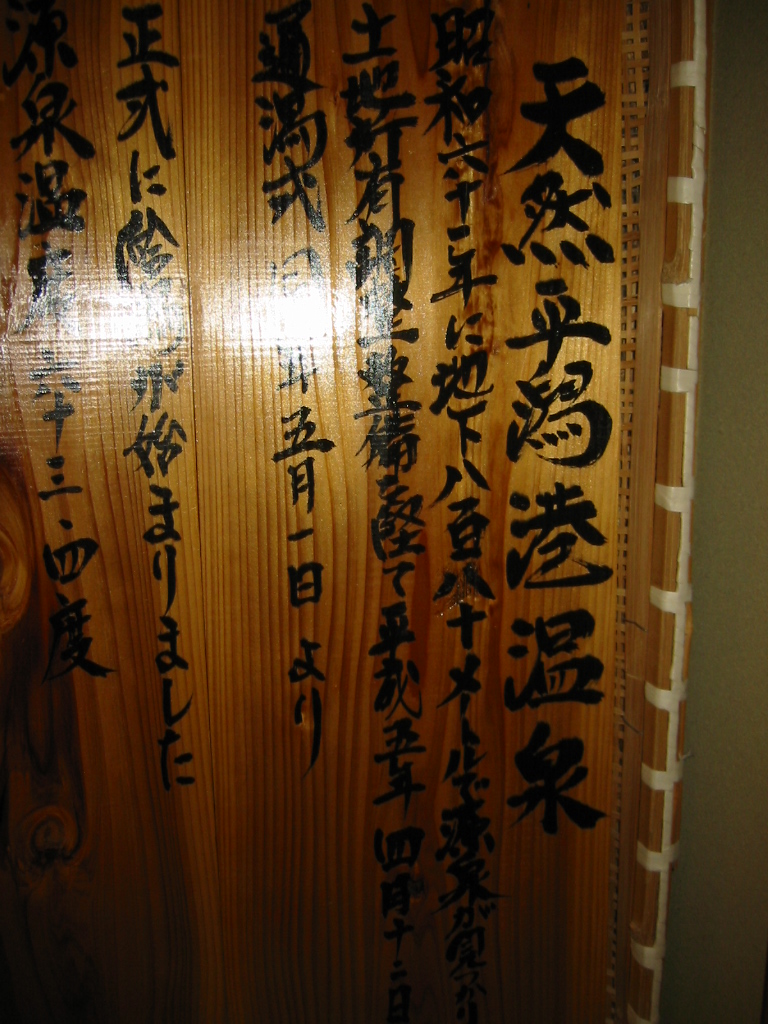 天然平潟港温泉
昭和六十二年に地下八百八十メートルで源泉が見つかり
土地所有調整整備を経て平成五年四月十二日
通湯式 同年五月一日より
正式に給湯が始まりました
源泉温度 六十三、四度